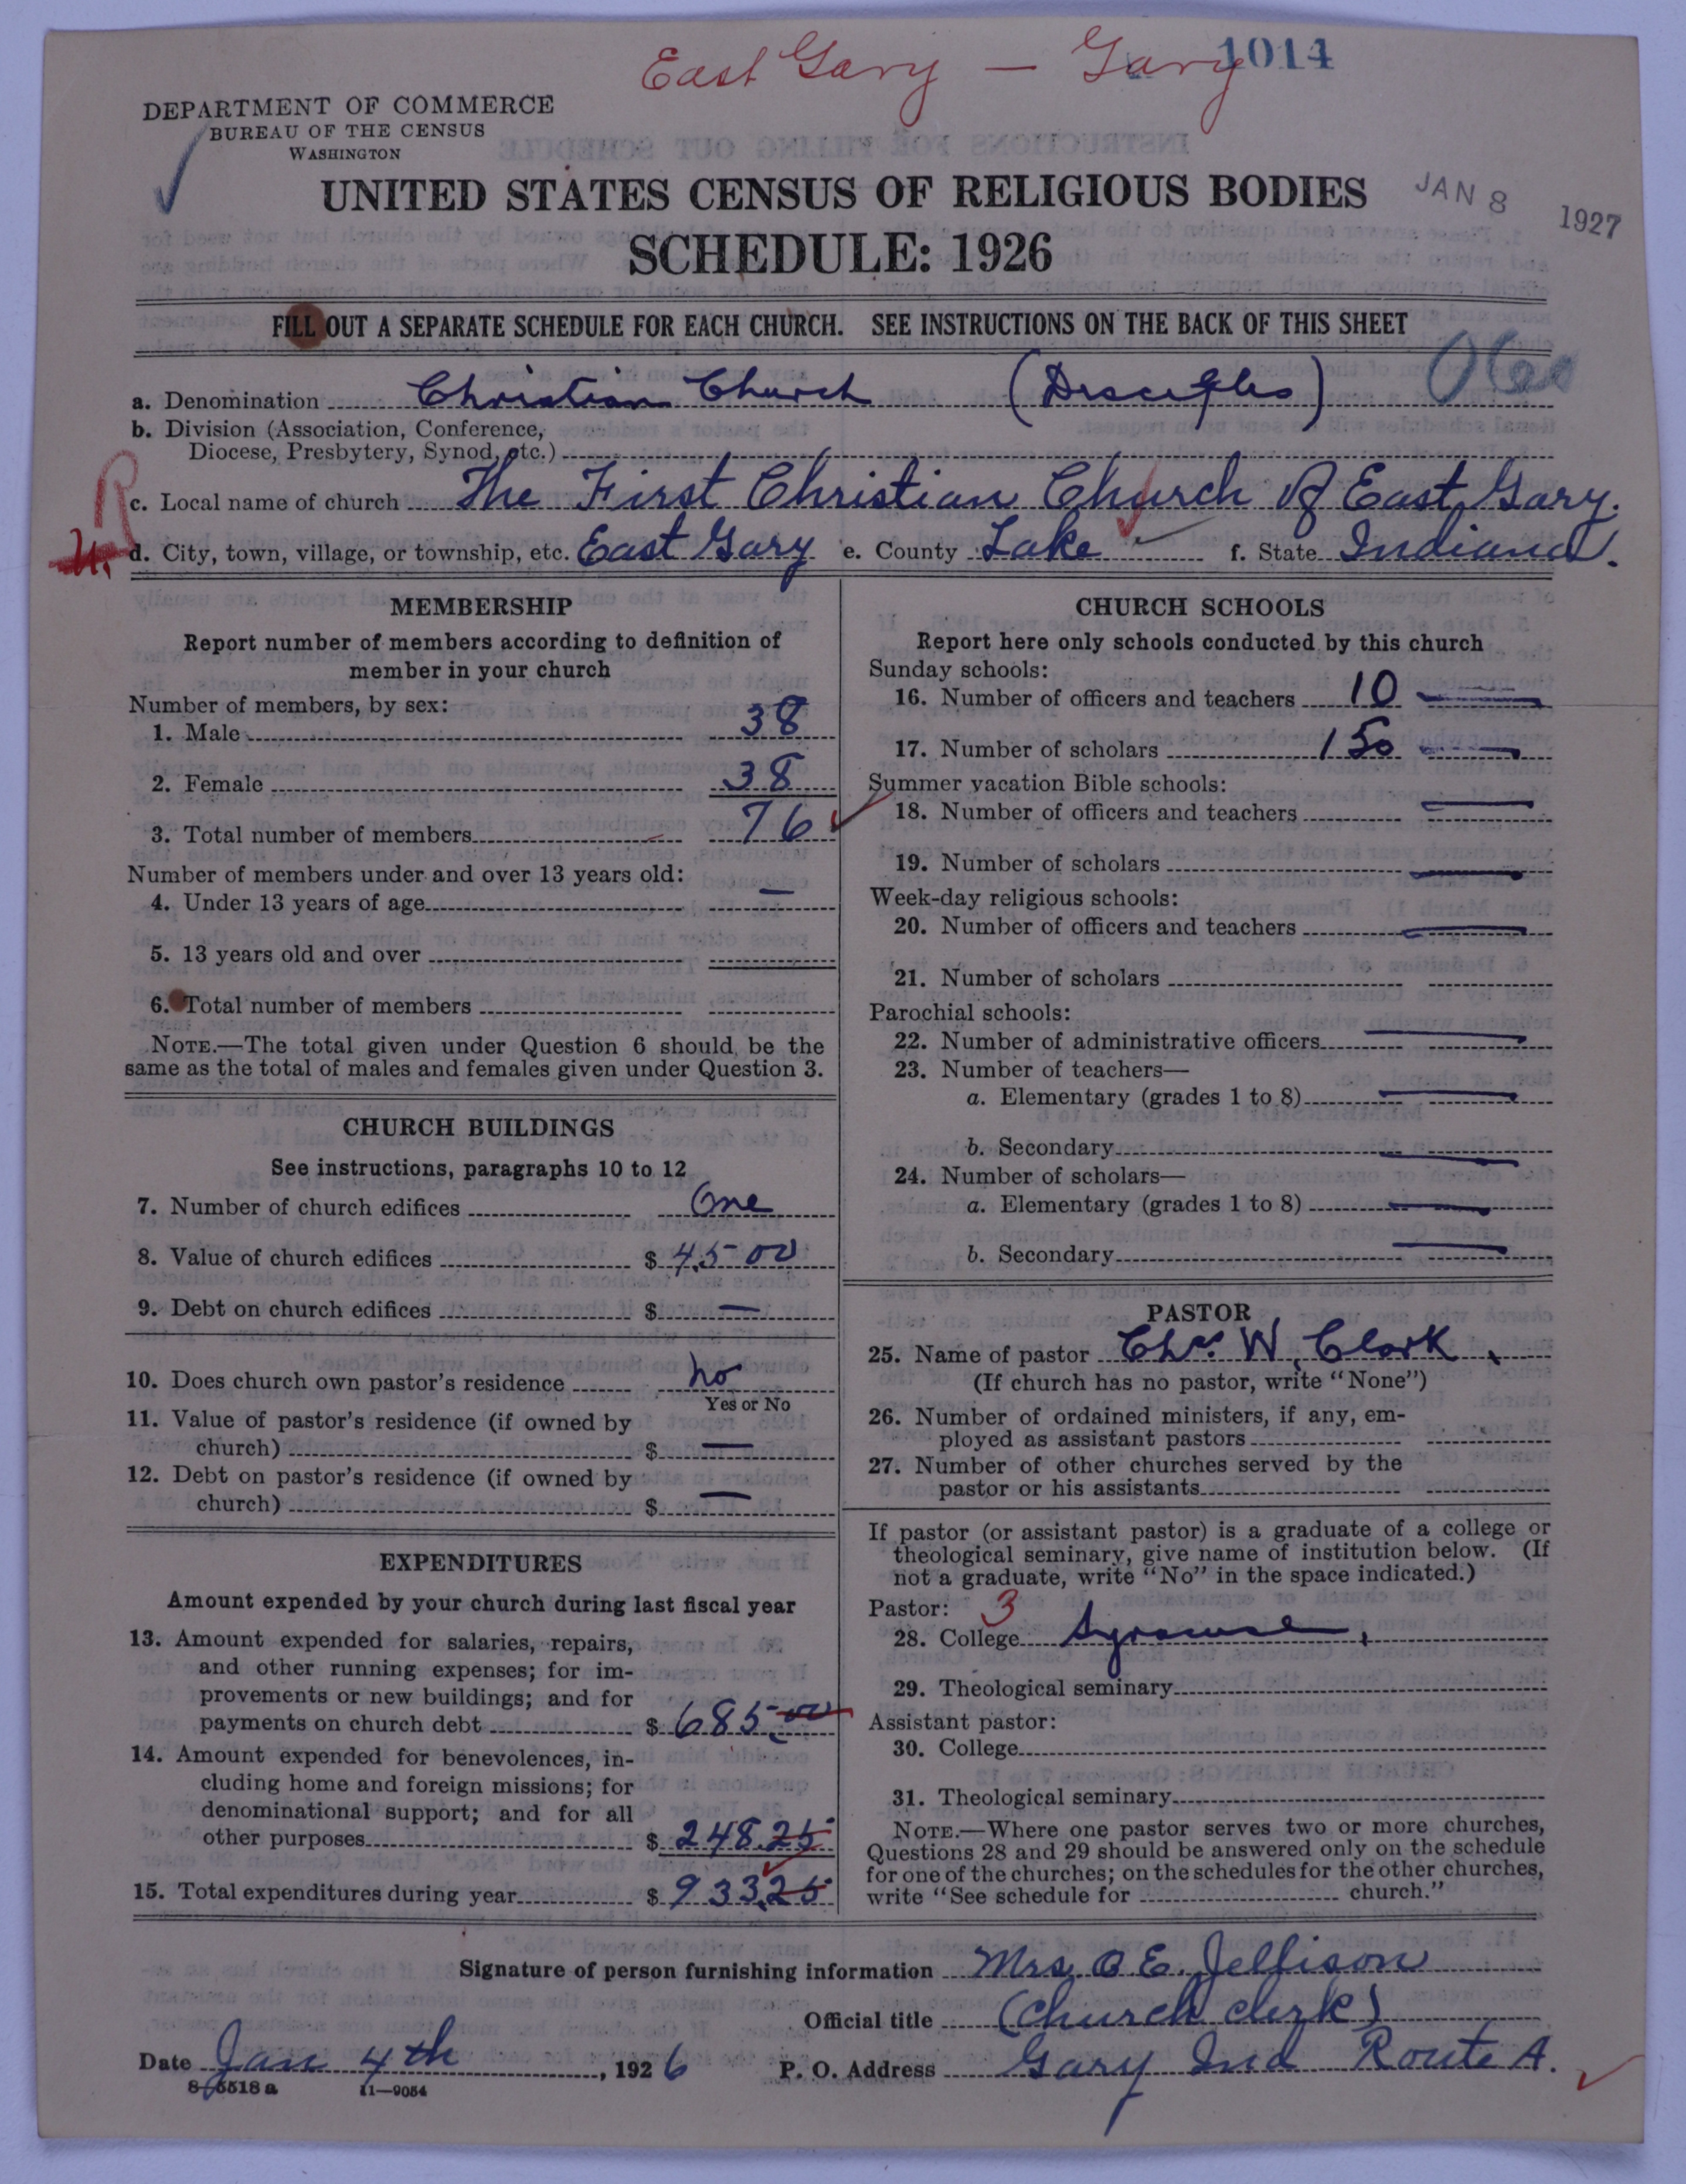 East Gary — Gary 1014
DEPARTMENT OF COMMERCE
BUREAU OF THE CENSUS
WASHINGTON
UNITED STATES CENSUS OF RELIGIOUS BODIES
JAN 8 1927
SCHEDULE: 1926
FILL OUT A SEPARATE SCHEDULE FOR EACH CHURCH. SEE INSTRUCTIONS ON THE BACK OF THIS SHEET
a. Denomination Christian Church (Disciples)
b. Division (Association, Conference,
Diocese, Presbytery, Synod, etc.)
R
c. Local name of church The First Christian Church Of East Gary.
d. City, town, village, or township, etc. East Gary e. County Lake f. State Indiana.
MEMBERSHIP
Report number of members according to definition of
member in your church
Number of members, by sex:
1. Male 38
2. Female 38
3. Total number of members 76
Number of members under and over 13 years old:
4. Under 13 years of age —
5. 13 years old and over
6. Total number of members
NOTE.—The total given under Question 6 should be the
same as the total of males and females given under Question 3.
CHURCH BUILDINGS
See instructions, paragraphs 10 to 12
7. Number of church edifices One
8. Value of church edifices $ 45 00
9. Debt on church edifices $ —
10. Does church own pastor's residence no
Yes or No
11. Value of pastor's residence (if owned by
church) $ —
12. Debt on pastor's residence (if owned by
church) $ —
EXPENDITURES
Amount expended by your church during last fiscal year
13. Amount expended for salaries, repairs,
and other running expenses; for im-
provements or new buildings; and for
payments on church debt $ 685.00
14. Amount expended for benevolences, in-
cluding home and foreign missions; for
denominational support; and for all
other purposes $ 248.25
15. Total expenditures during year $ 933.25
CHURCH SCHOOLS
Report here only schools conducted by this church
Sunday schools:
16. Number of officers and teachers 10 —
17. Number of scholars 150 —
Summer vacation Bible schools:
18. Number of officers and teachers —
19. Number of scholars —
Week-day religious schools:
20. Number of officers and teachers —
21. Number of scholars
Parochial schools:
22. Number of administrative officers —
23. Number of teachers—
a. Elementary (grades 1 to 8) —
b. Secondary —
24. Number of scholars—
a. Elementary (grades 1 to 8) —
b. Secondary —
PASTOR
25. Name of pastor Chas. W. Clark
(If church has no pastor, write "None")
26. Number of ordained ministers, if any, em-
ployed as assistant pastors
27. Number of other churches served by the
pastor or his assistants
If pastor (or assistant pastor) is a graduate of a college or
theological seminary, give name of institution below. (If
not a graduate, write "No" in the space indicated.)
Pastor: 3
28. College Syracuse,
29. Theological seminary
Assistant pastor:
30. College
31. Theological seminary
NOTE.—Where one pastor serves two or more churches,
Questions 28 and 29 should be answered only on the schedule
for one of the churches; on the schedules for the other churches,
write "See schedule for church."
Signature of person furnishing information Mrs. O E. Jellison
Official title (Church clerk)
Date Jan 4th, 1926 P. O. Address Gary Ind Route A.
8-5518 a 11—9054